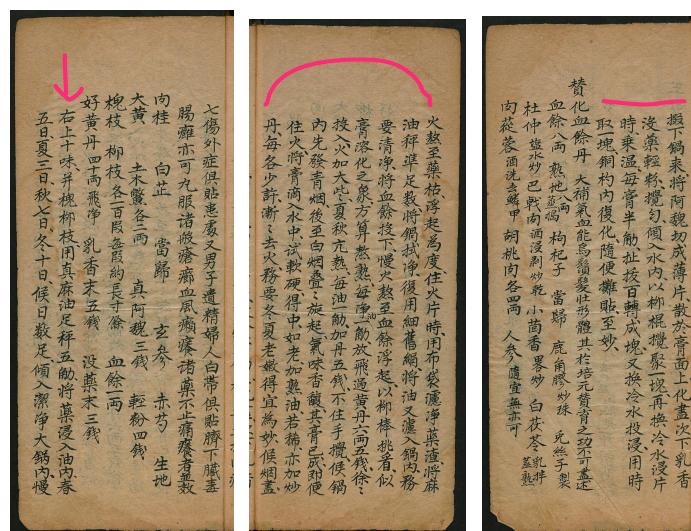 七傷外症俱貼患處又男子遺精婦人白帶俱貼臍下臟毒
腸癰亦可丸服諸般瘡癤血風癲癢諸藥不止痛癢者並效
肉桂 白芷 當歸 玄參 赤芍 生地
大黃 土木鱉各二兩 真阿魏三錢 輕粉四錢
槐枝 柳枝各一百段每段約長寸餘 血餘一兩
好黃丹四十兩飛淨 乳香末五錢 沒藥末三錢
右上十味并槐柳枝用真麻油足秤五觔將藥浸入油內春
五日夏三日秋七日冬十日候日數足傾入潔淨大鍋內慢
火熬至藥枯浮起為度住火片時用布袋濾淨藥渣將麻
油秤準足數將鍋拭淨復用細舊絹將油又濾入鍋內務
要清淨將血餘投下慢火熬至血餘浮起以柳棒挑看似
膏溶化之象方算熬熟每淨油一觔放飛過黃丹六兩五錢徐〻
投入火加大些夏秋亢熱每油一觔加丹五錢不住手攪候鍋
內先發青烟後至白烟疊〻旋起氣味香馥其膏已成即便
住火將膏滴入水中試軟硬得中如老加熟油若稀亦加炒
丹每各少許漸〻去火務要冬夏老嫩得宜為妙候烟盡
掇下鍋來將阿魏切成薄片散於膏面上化盡次下乳香
沒藥輕粉攪勻傾入水內以柳棍攪聚一塊再換冷水浸片
時乘溫每膏半觔扯拔百轉成塊又換冷水投浸用時
取一塊銅杓內復化隨便攤貼至妙
贊化血餘丹 大補氣血能烏鬚髮壯形體其於培元贊育之功不可盡述
血餘八兩 熟地八兩蒸搗 枸杞子 當歸 鹿角膠炒珠 兔絲子製
杜仲鹽水炒 巴戟肉酒浸剝炒乾 小茴香畧炒 白茯苓乳拌蒸熟
肉蓯蓉酒洗去鱗甲 胡桃肉各四兩 人參隨宜無亦可